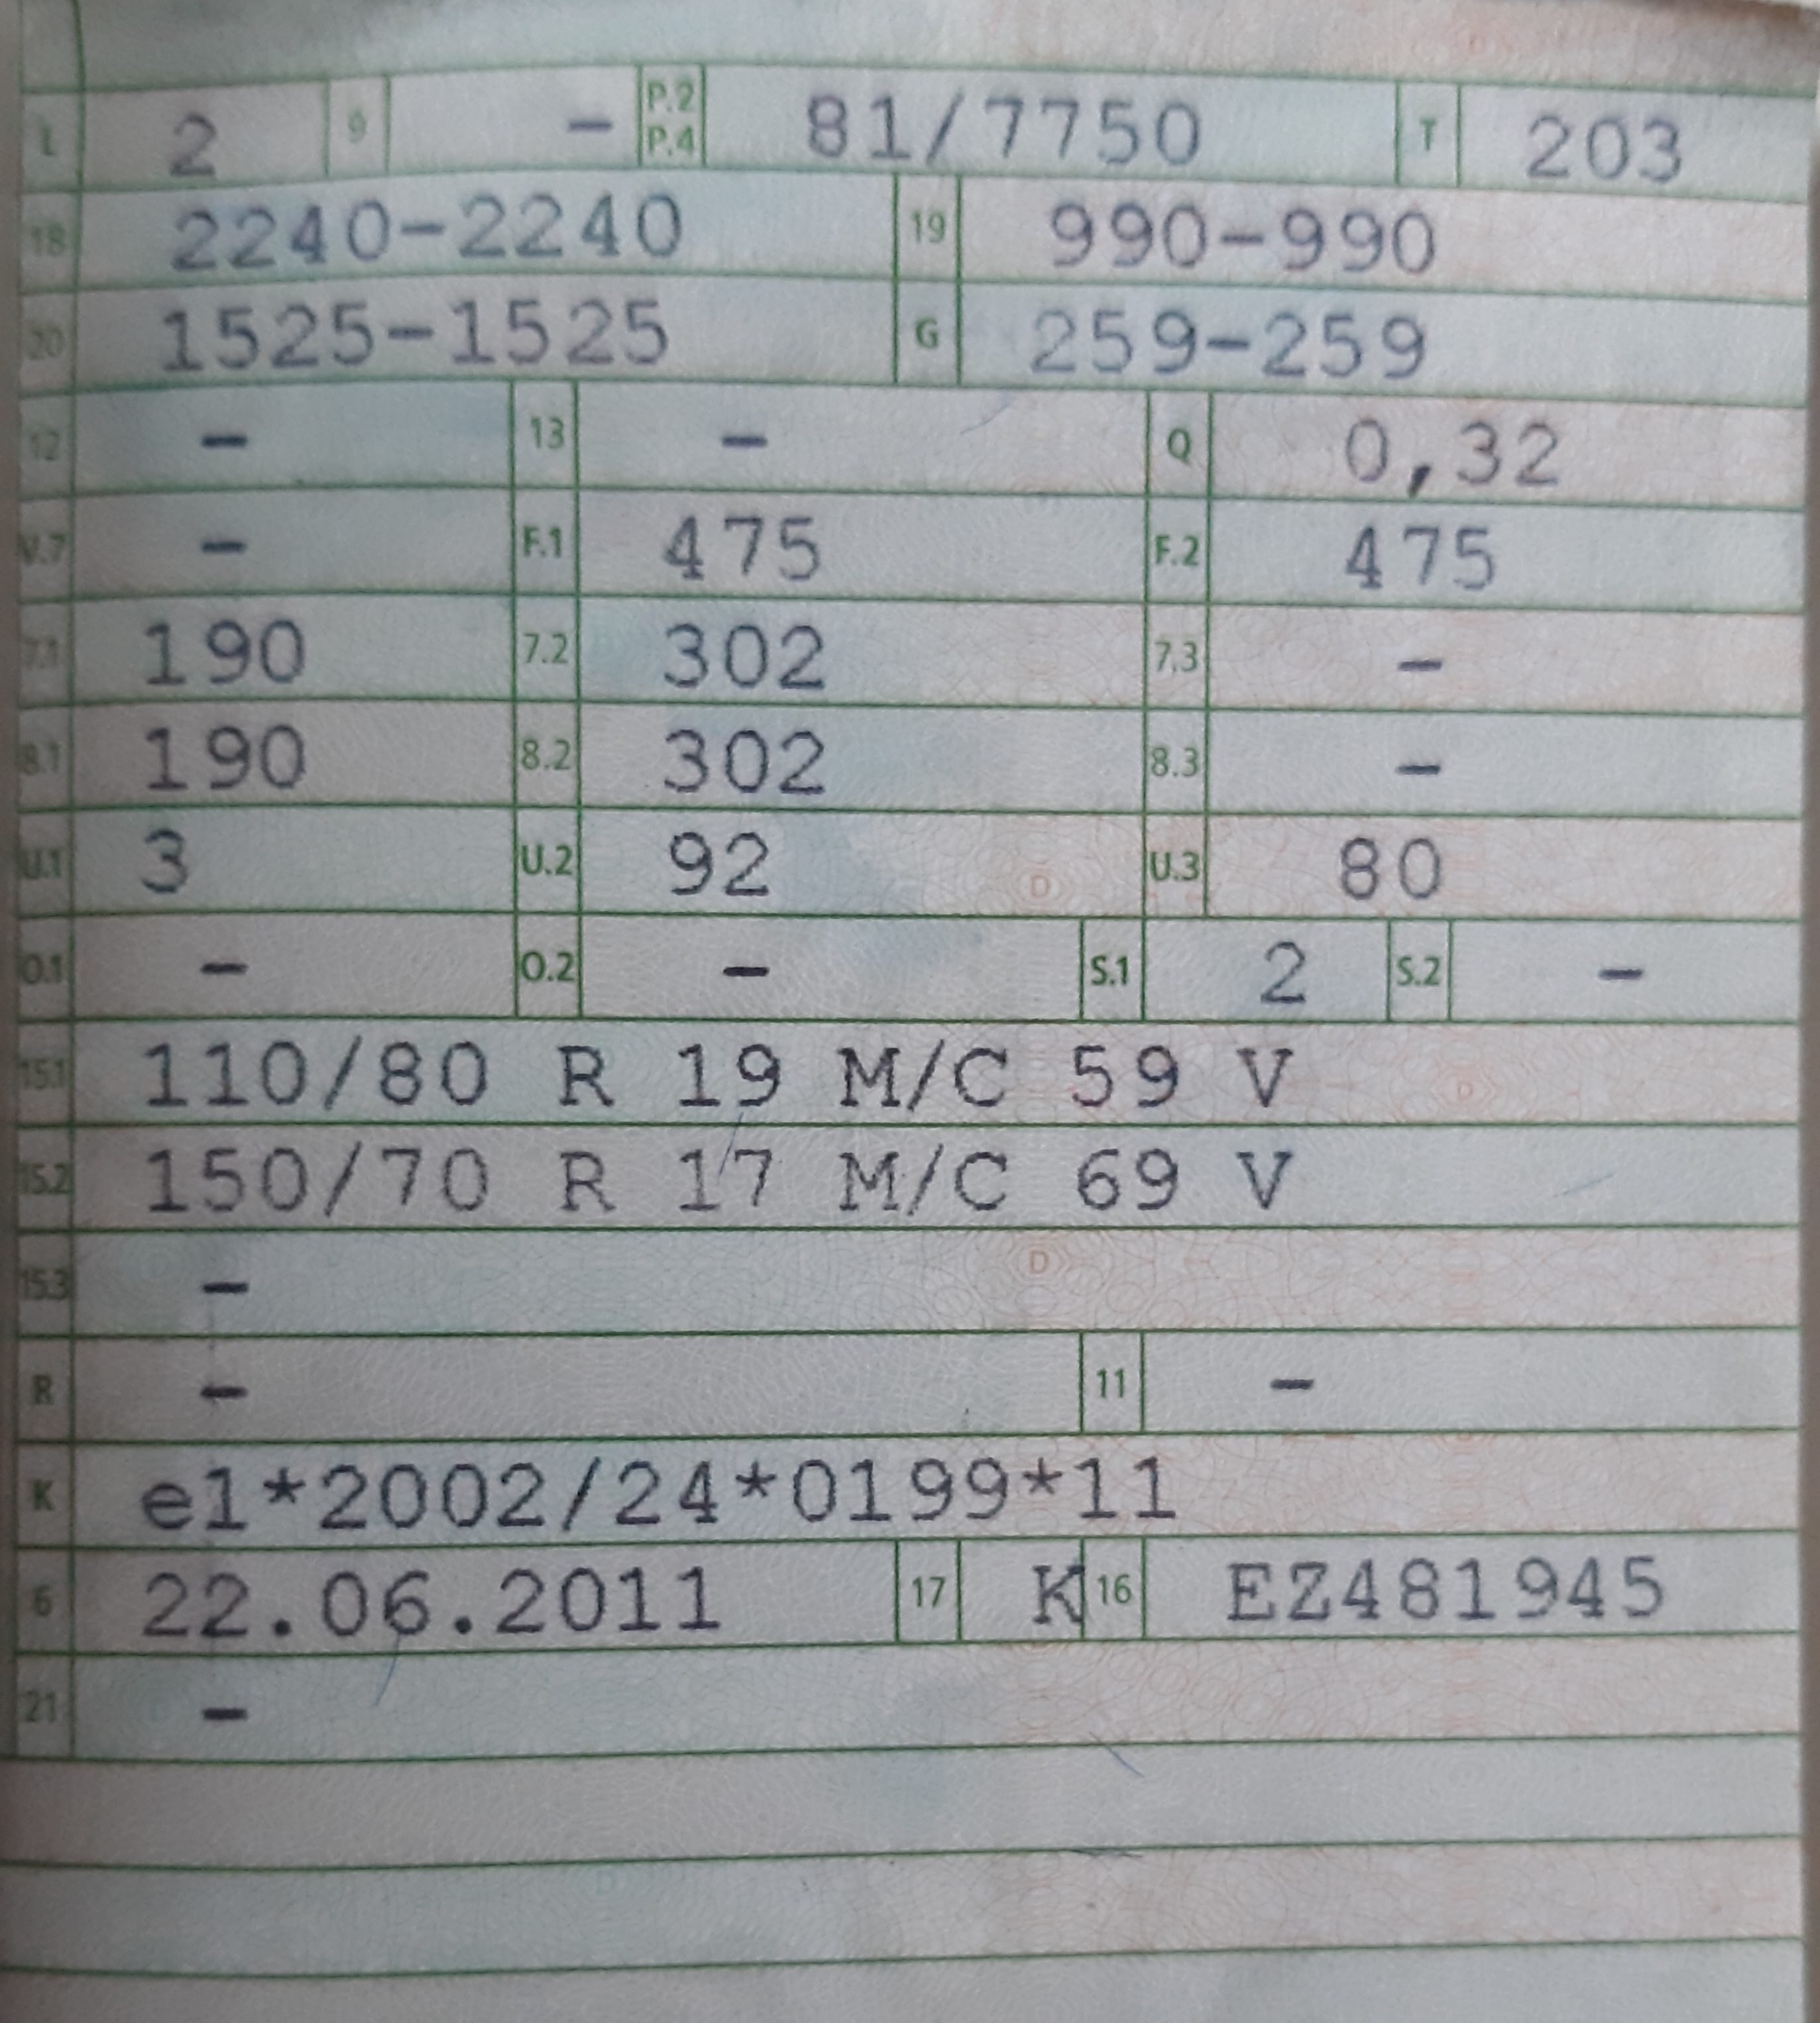 L 2 9 - P.2 P.4 81/7750 T 203
18 2240-2240 19 990-990
20 1525-1525 G 259-259
12 - 13 - Q 0,32
V.7 - F.1 475 F.2 475
7.1 190 7.2 302 7.3 -
8.1 190 8.2 302 8.3 -
U.1 3 U.2 92 U.3 80
O.1 - O.2 - S.1 2 S.2 -
15.1 110/80 R 19 M/C 59 V
15.2 150/70 R 17 M/C 69 V
15.3 -
R - 11 -
K e1*2002/24*0199*11
6 22.06.2011 17 K 16 EZ481945
21 -